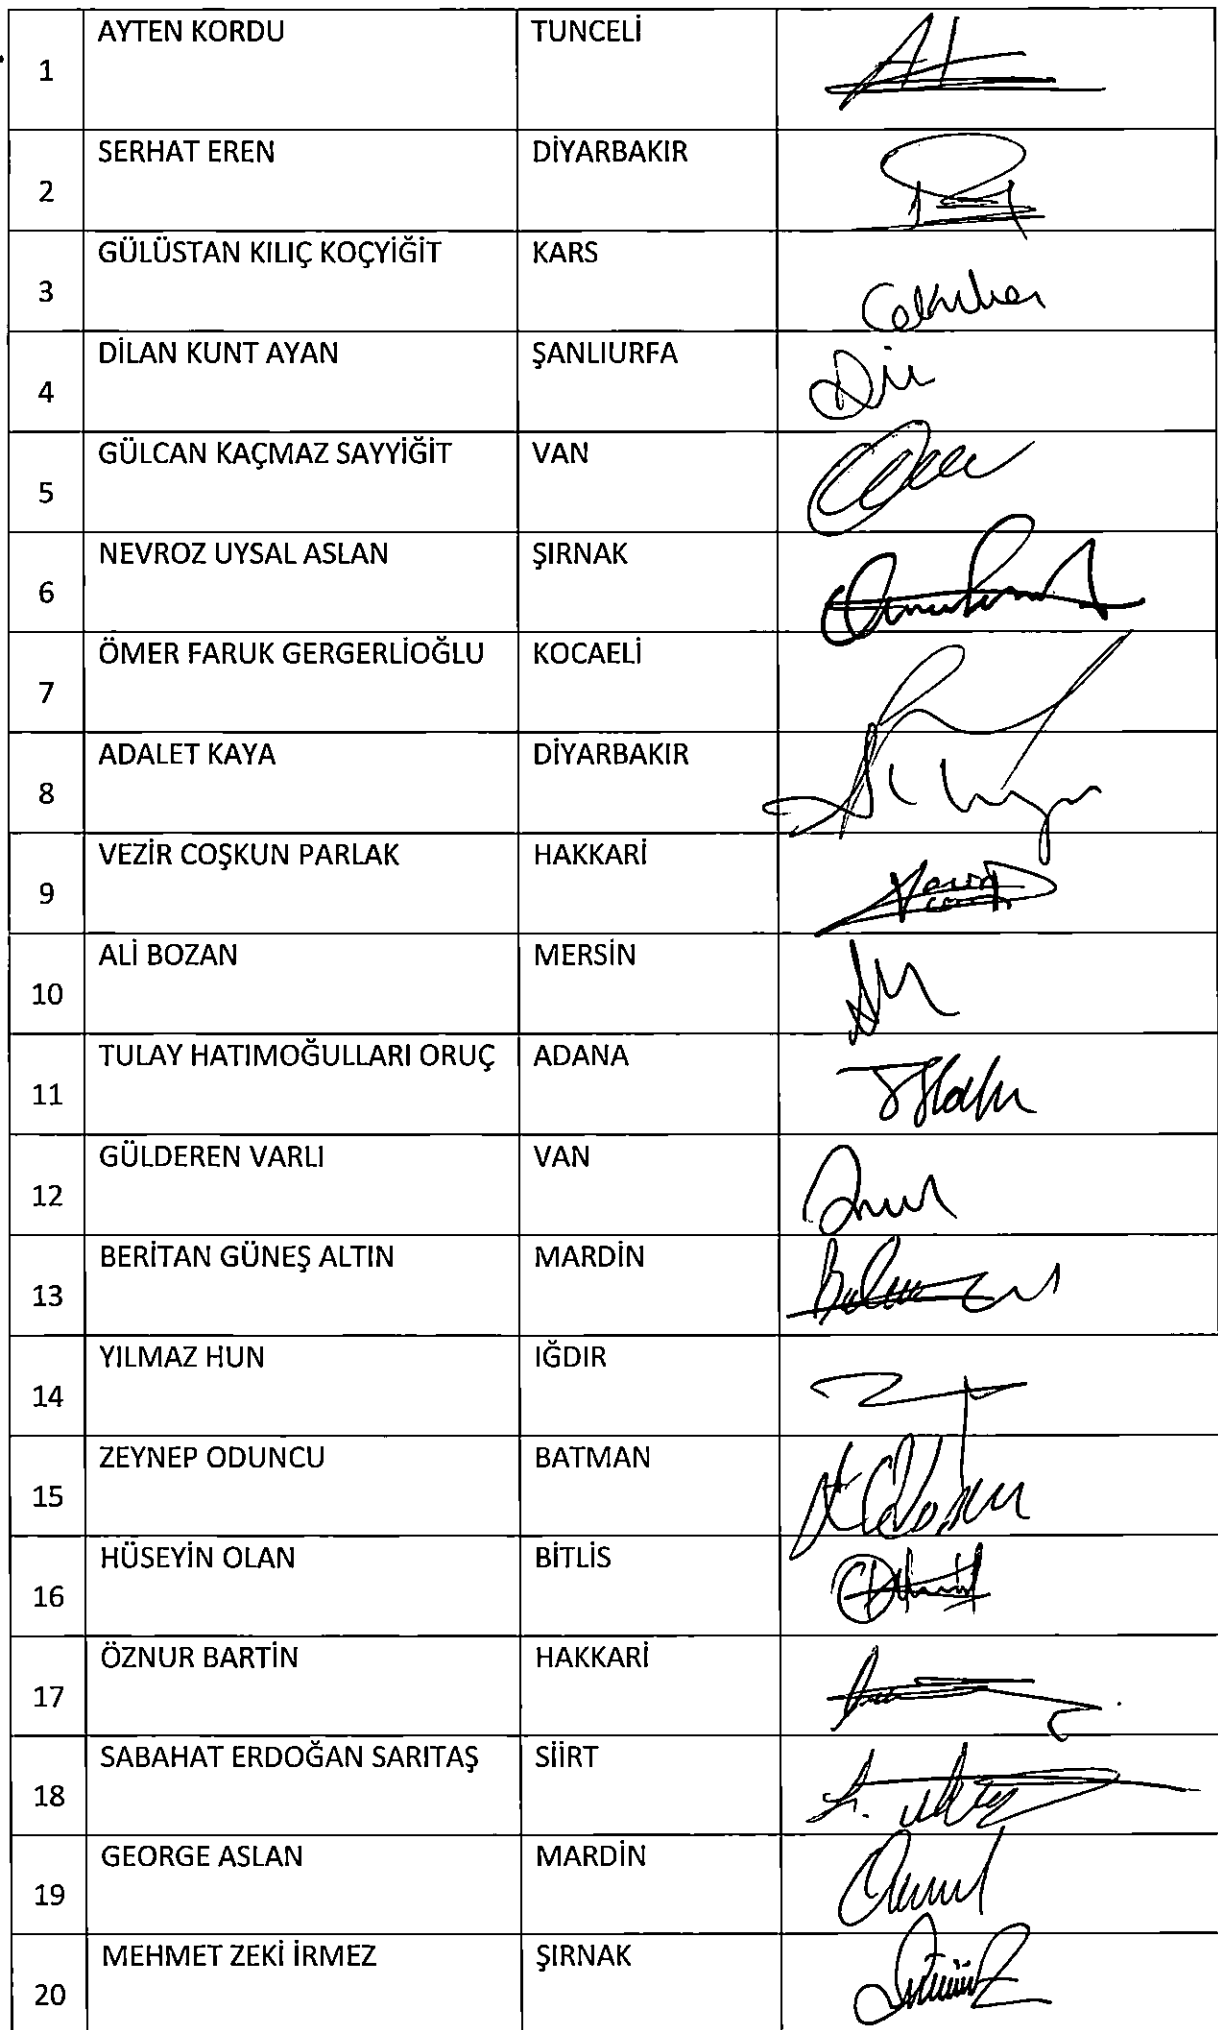 1 AYTEN KORDU TUNCELİ
2 SERHAT EREN DİYARBAKIR
3 GÜLÜSTAN KILIÇ KOÇYİĞİT KARS
4 DİLAN KUNT AYAN ŞANLIURFA
5 GÜLCAN KAÇMAZ SAYYİĞİT VAN
6 NEVROZ UYSAL ASLAN ŞIRNAK
7 ÖMER FARUK GERGERLİOĞLU KOCAELİ
8 ADALET KAYA DİYARBAKIR
9 VEZİR COŞKUN PARLAK HAKKARİ
10 ALİ BOZAN MERSİN
11 TULAY HATIMOĞULLARI ORUÇ ADANA
12 GÜLDEREN VARLI VAN
13 BERİTAN GÜNEŞ ALTIN MARDİN
14 YILMAZ HUN IĞDIR
15 ZEYNEP ODUNCU BATMAN
16 HÜSEYİN OLAN BİTLİS
17 ÖZNUR BARTİN HAKKARİ
18 SABAHAT ERDOĞAN SARITAŞ SİİRT
19 GEORGE ASLAN MARDİN
20 MEHMET ZEKİ İRMEZ ŞIRNAK